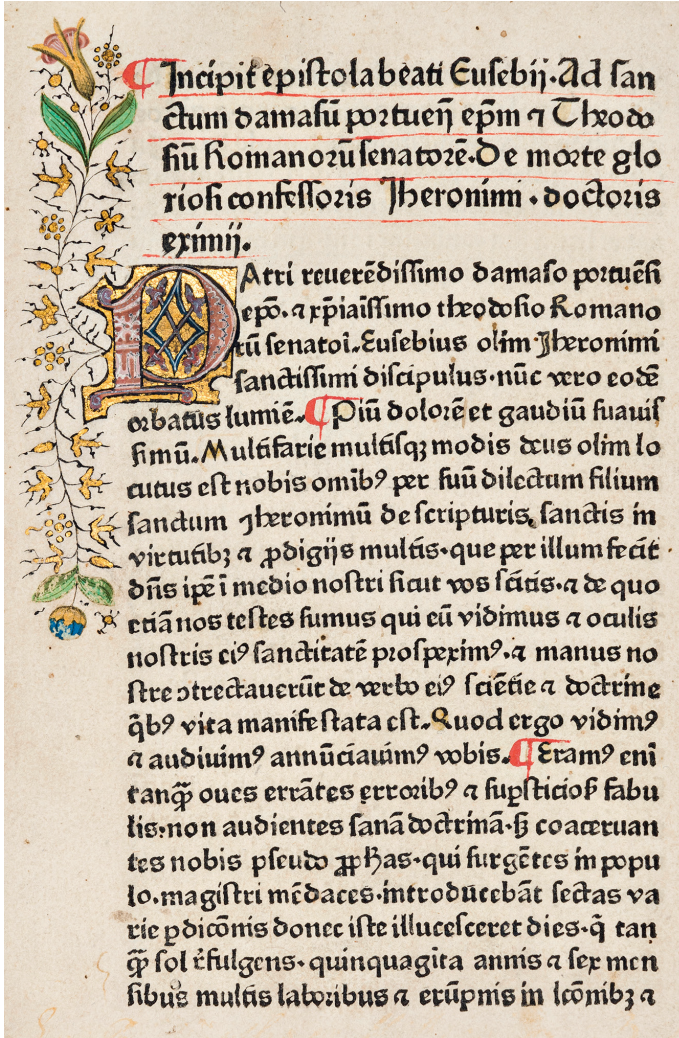 ¶ Incipit epistola beati Eusebij. Ad san
ctum damasū portueñ epm̄ ⁊ Theodo
siū Romanorū senatorē. De morte glo
riosi confessoris Jheronimi. doctoris
eximij.
PAtri reuerēdissimo damaso portuēsi
epō. ⁊ xp̄iaīssimo theodosio Romano
rū senatoi. Eusebius olim Jheronimi
sanctissimi discipulus. nūc vero eodē
orbatus lumiē. ¶ Piū dolorē et gaudiū suauis
simū. Multifarie multisqꝫ modis deus olim lo
cutus est nobis omībꝰ per suū dilectum filium
sanctum Jheronimū de scripturis, sanctis in
virtutibꝫ ⁊ ꝓdigijs multis. que per illum fecit
dn̄s ip̄e ī medio nostri sicut vos scitis. ⁊ de quo
etiā nos testes sumus qui eū vidimus ⁊ oculis
nostris eiꝰ sanctitatē prospeximꝰ. ⁊ manus no
stre ↄtrectauerūt de verbo eiꝰ sciētie ⁊ doctrine
q̄bꝰ vita manifestata est. Quod ergo vidimꝰ
⁊ audiuimꝰ annūciauimꝰ vobis. ¶ Eramꝰ eni
tanqꝫ̄ oues errātes erroribꝰ ⁊ suꝑsticiosꝭ fabu
lis. non audientes sanā doctrinā. sꝫ coaceruan
tes nobis pseudo ꝓphas. qui surgētes in popu
lo. magistri mēdaces. introducebāt sectas va
rie ꝑdicōnis donec iste illucesceret dies. q̄ tan
qꝫ̄ sol r̄fulgens. quinquagita annis ⁊ sex men
sibus multis laboribus ⁊ erūpnis in lcōnibꝫ ⁊